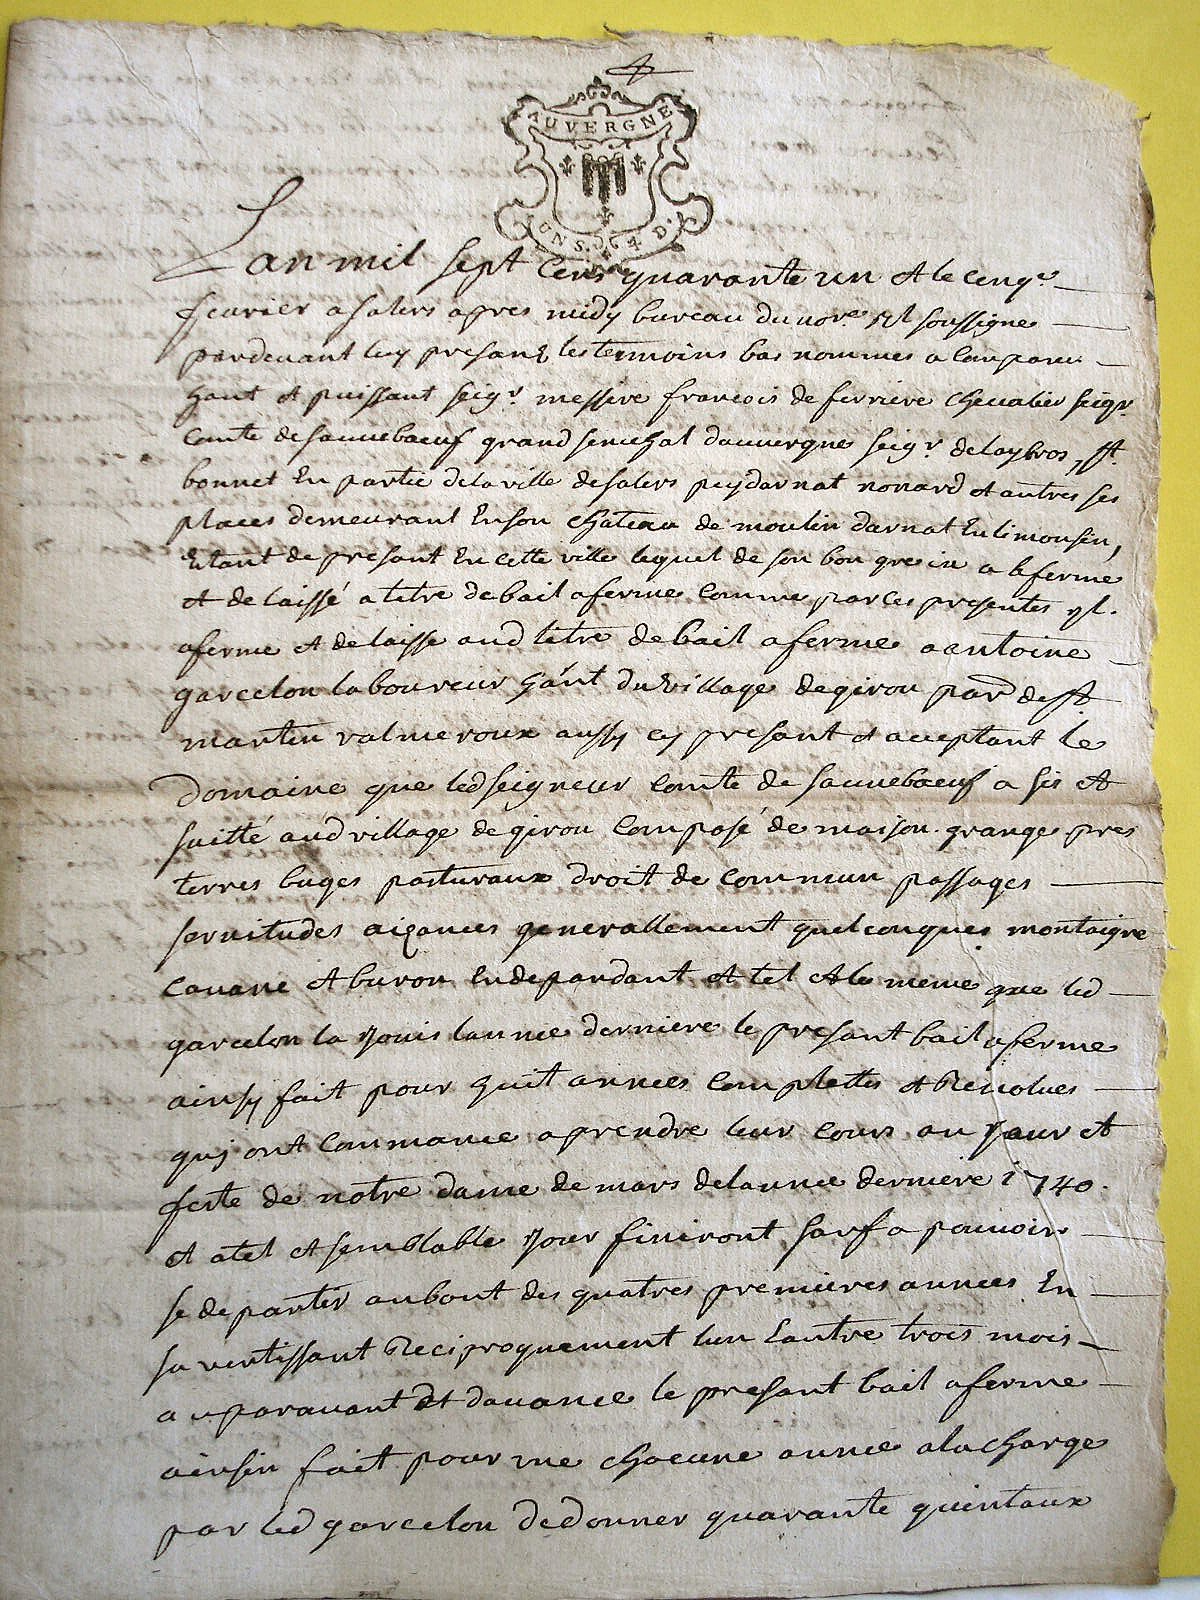 AUVERGNE
UN S. 4 D.
Lan mil sept cens quarante un et le cinqe
fevrier a salers apres midy bureau du nore rl soussigne
pardevant luy presans les temoins bas nommes a comparu
haut et puissant seigr messire francois de ferriere chevalier seigr
comte de sauveboeuf grand senechal dauvergne seigr de laybros, st
bonnet En partie dela ville de salers puydarnat nonard et autres ses
places demeurant Enson chateau de moulin darnat En limousin,
Etant de presant En cette ville lequel de son bon gre a afermé
et de laissé a titre de bail a ferme comme par ces presentes yl
aferme et delaisse aud titre de bail a ferme a antoine
garcelon laboureur hant du village de girou parse de st
martin valmeroux aussy cy presant et acceptant le
domaine que led seigneur comte de sauveboeuf a sis et
suitté aud village de girou composé de maison grange pres
terres buges pasturaux droit de commun passages
servitudes aizances generallement quelconques montaigne
cavane et buron En depandant et tel et le meme que led
garcelon la jouis lannee derniere le presant bail a ferme
ainsy fait pour huit annees complettes et Revolues
quj ont commance a prendre leur cours au jour et
feste de notre dame de mars delannee derniere 1740.
et a tel et semblable jour finiront sauf a pouvoir
se departir au bout des quatres premieres annees En
sa vertissant Reciproquement lun Lautre trois mois
auparavant et davance le presant bail a ferme
ainsin fait pour une chacune annee a la charge
par led garcelon de donner quarante quintaux